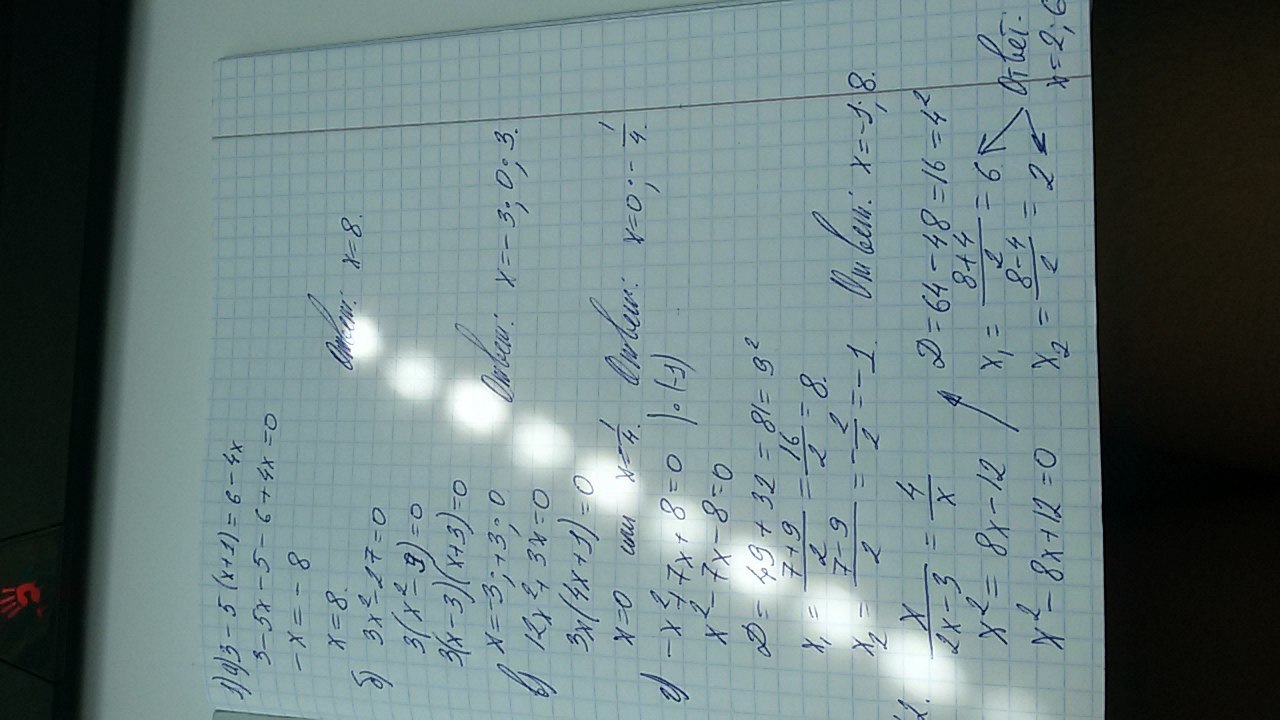 1) а) 3 - 5(x+1) = 6 - 4x
3 - 5x - 5 - 6 + 4x = 0
-x = -8
x = 8. Ответ: x = 8.
б) 3x² - 27 = 0
3(x² - 9) = 0
3(x-3)(x+3) = 0
x = -3; +3; 0 Ответ: x = -3; 0; 3.
в) 12x² + 3x = 0
3x(4x+1) = 0
x = 0 или x = -1/4. Ответ: x = 0; -1/4.
г) -x² + 7x + 8 = 0 | · (-1)
x² - 7x - 8 = 0
D = 49 + 32 = 81 = 9²
x₁ = (7+9)/2 = 16/2 = 8.
x₂ = (7-9)/2 = -2/2 = -1. Ответ: x = -1; 8.
2. x/(2x-3) = 4/x
x² = 8x - 12
x² - 8x + 12 = 0
D = 64 - 48 = 16 = 4²
x₁ = (8+4)/2 = 6
x₂ = (8-4)/2 = 2
Ответ:
x = 2; 6